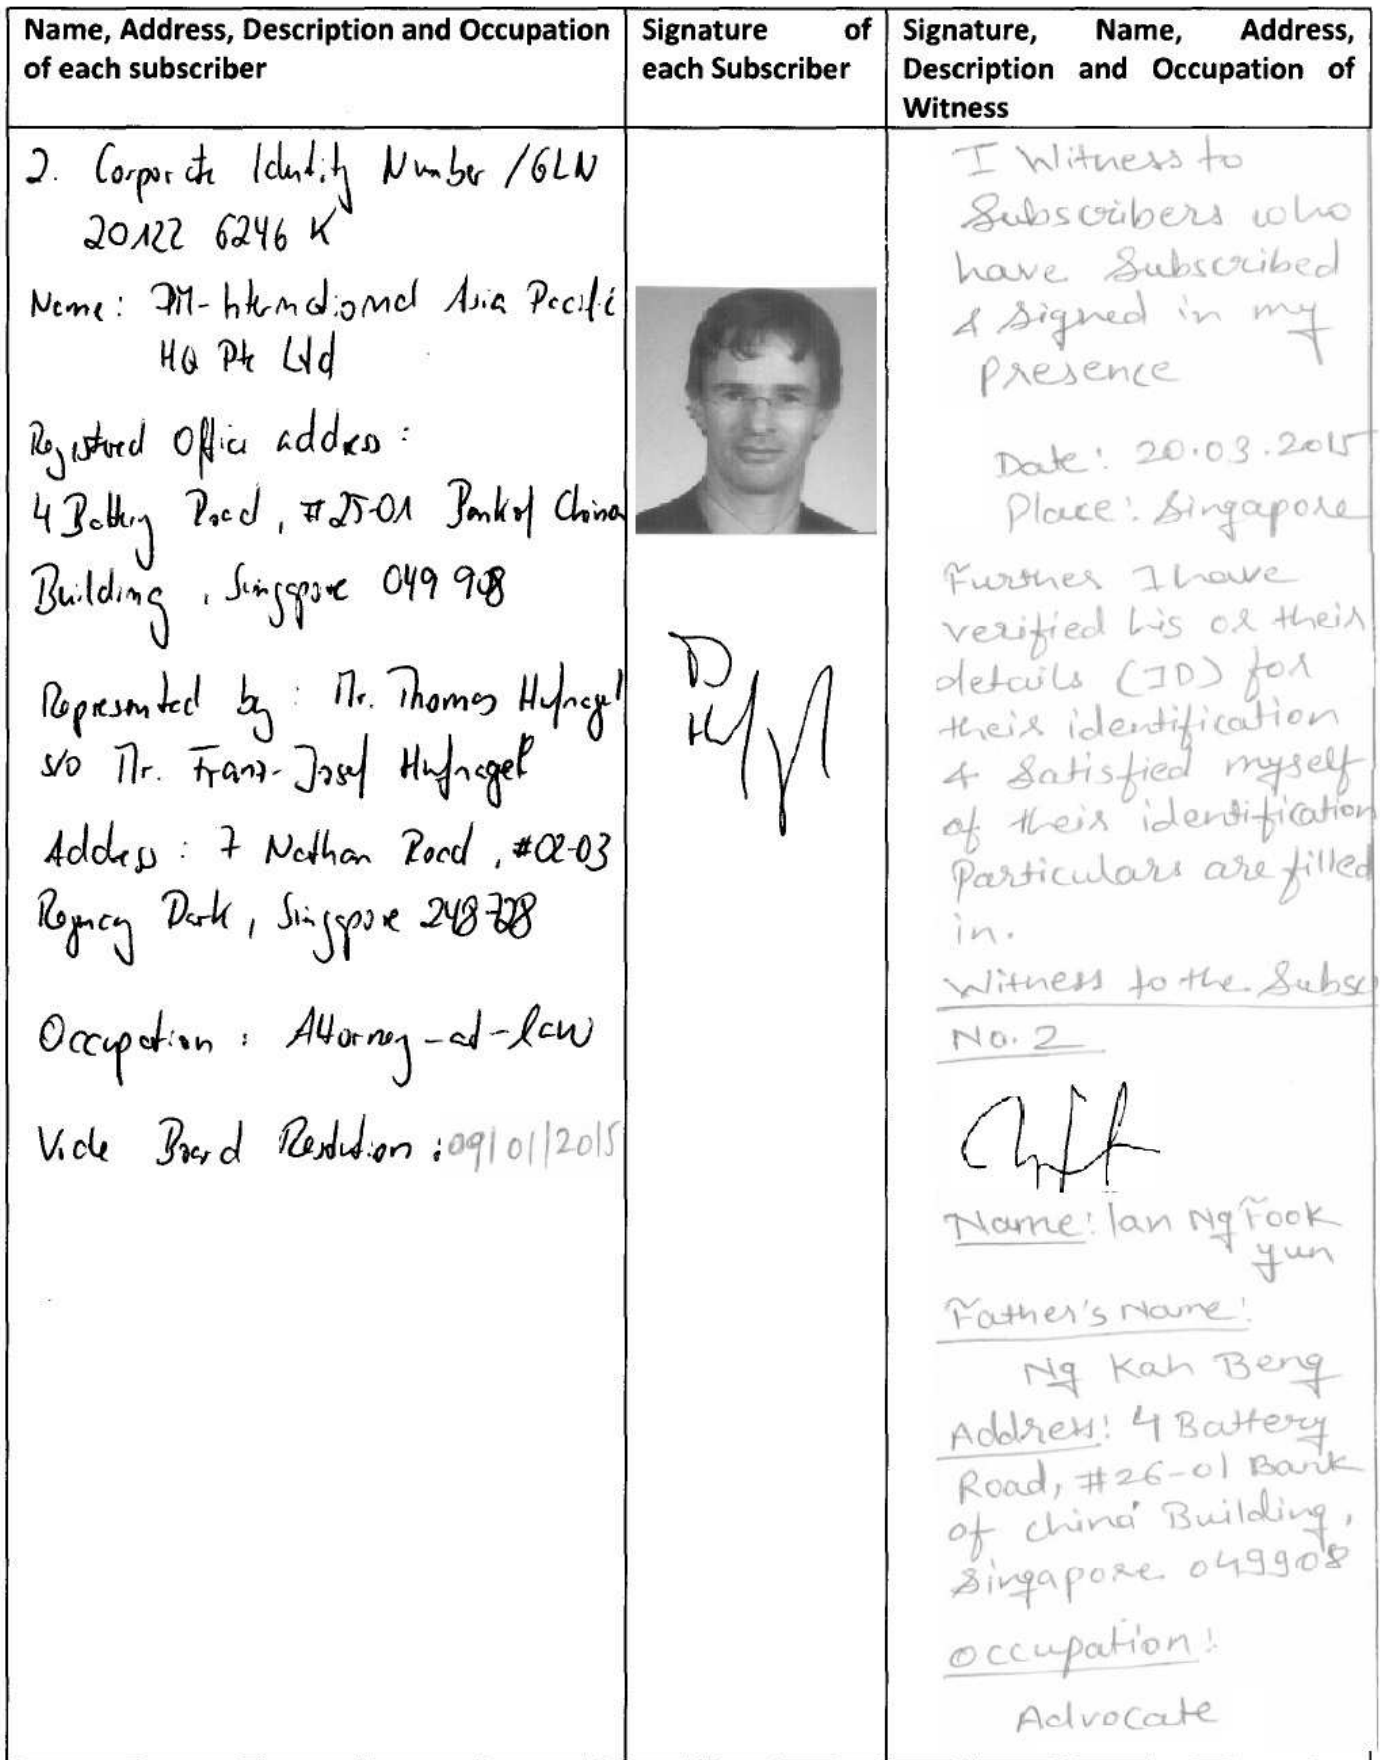 Name, Address, Description and Occupation
of each subscriber
Signature of
each Subscriber
Signature, Name, Address,
Description and Occupation of
Witness
2. Corporate Identity Number / GLN
20122 6246 K
Name: PM-International Asia Pacific
HQ Pte Ltd
Registered Office address:
4 Battery Road, #25-01 Bank of China
Building, Singapore 049 908
Represented by: Mr. Thomas Hufnagel
s/o Mr. Franz-Josef Hufnagel
Address: 7 Nathan Road, #02-03
Regency Park, Singapore 248 728
Occupation: Attorney-at-law
Vide Board Resolution: 09/01/2015
I Witness to
Subscribers who
have Subscribed
& Signed in my
Presence
Date: 20.03.2015
Place: Singapore
Further I have
verified his or their
details (ID) for
their identification
& Satisfied myself
of their identification
Particulars are filled
in.
Witness to the Subsc
No. 2
Name: Ian Ng Fook
Yun
Father's Name:
Ng Kah Beng
Address: 4 Battery
Road, #26-01 Bank
of China Building,
Singapore 049908
Occupation:
Advocate